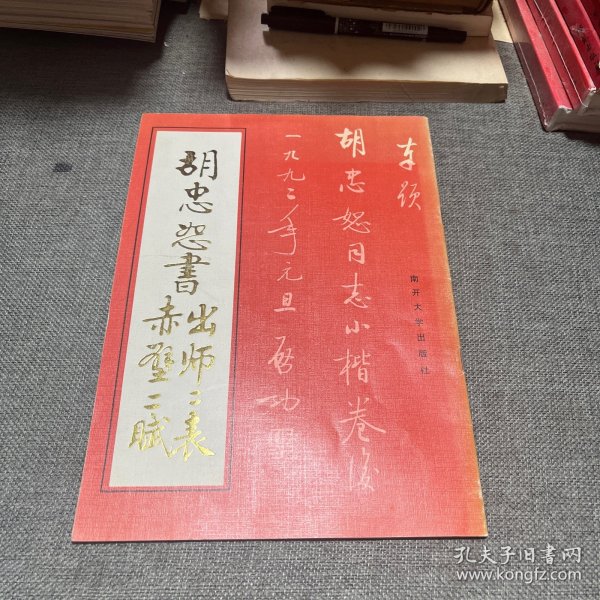 奉题
胡忠恕同志小楷卷后
一九九二年元旦 启功
南开大学出版社
胡忠恕书
出师二表
赤壁二赋
孔夫子旧书网
www.kongfz.com